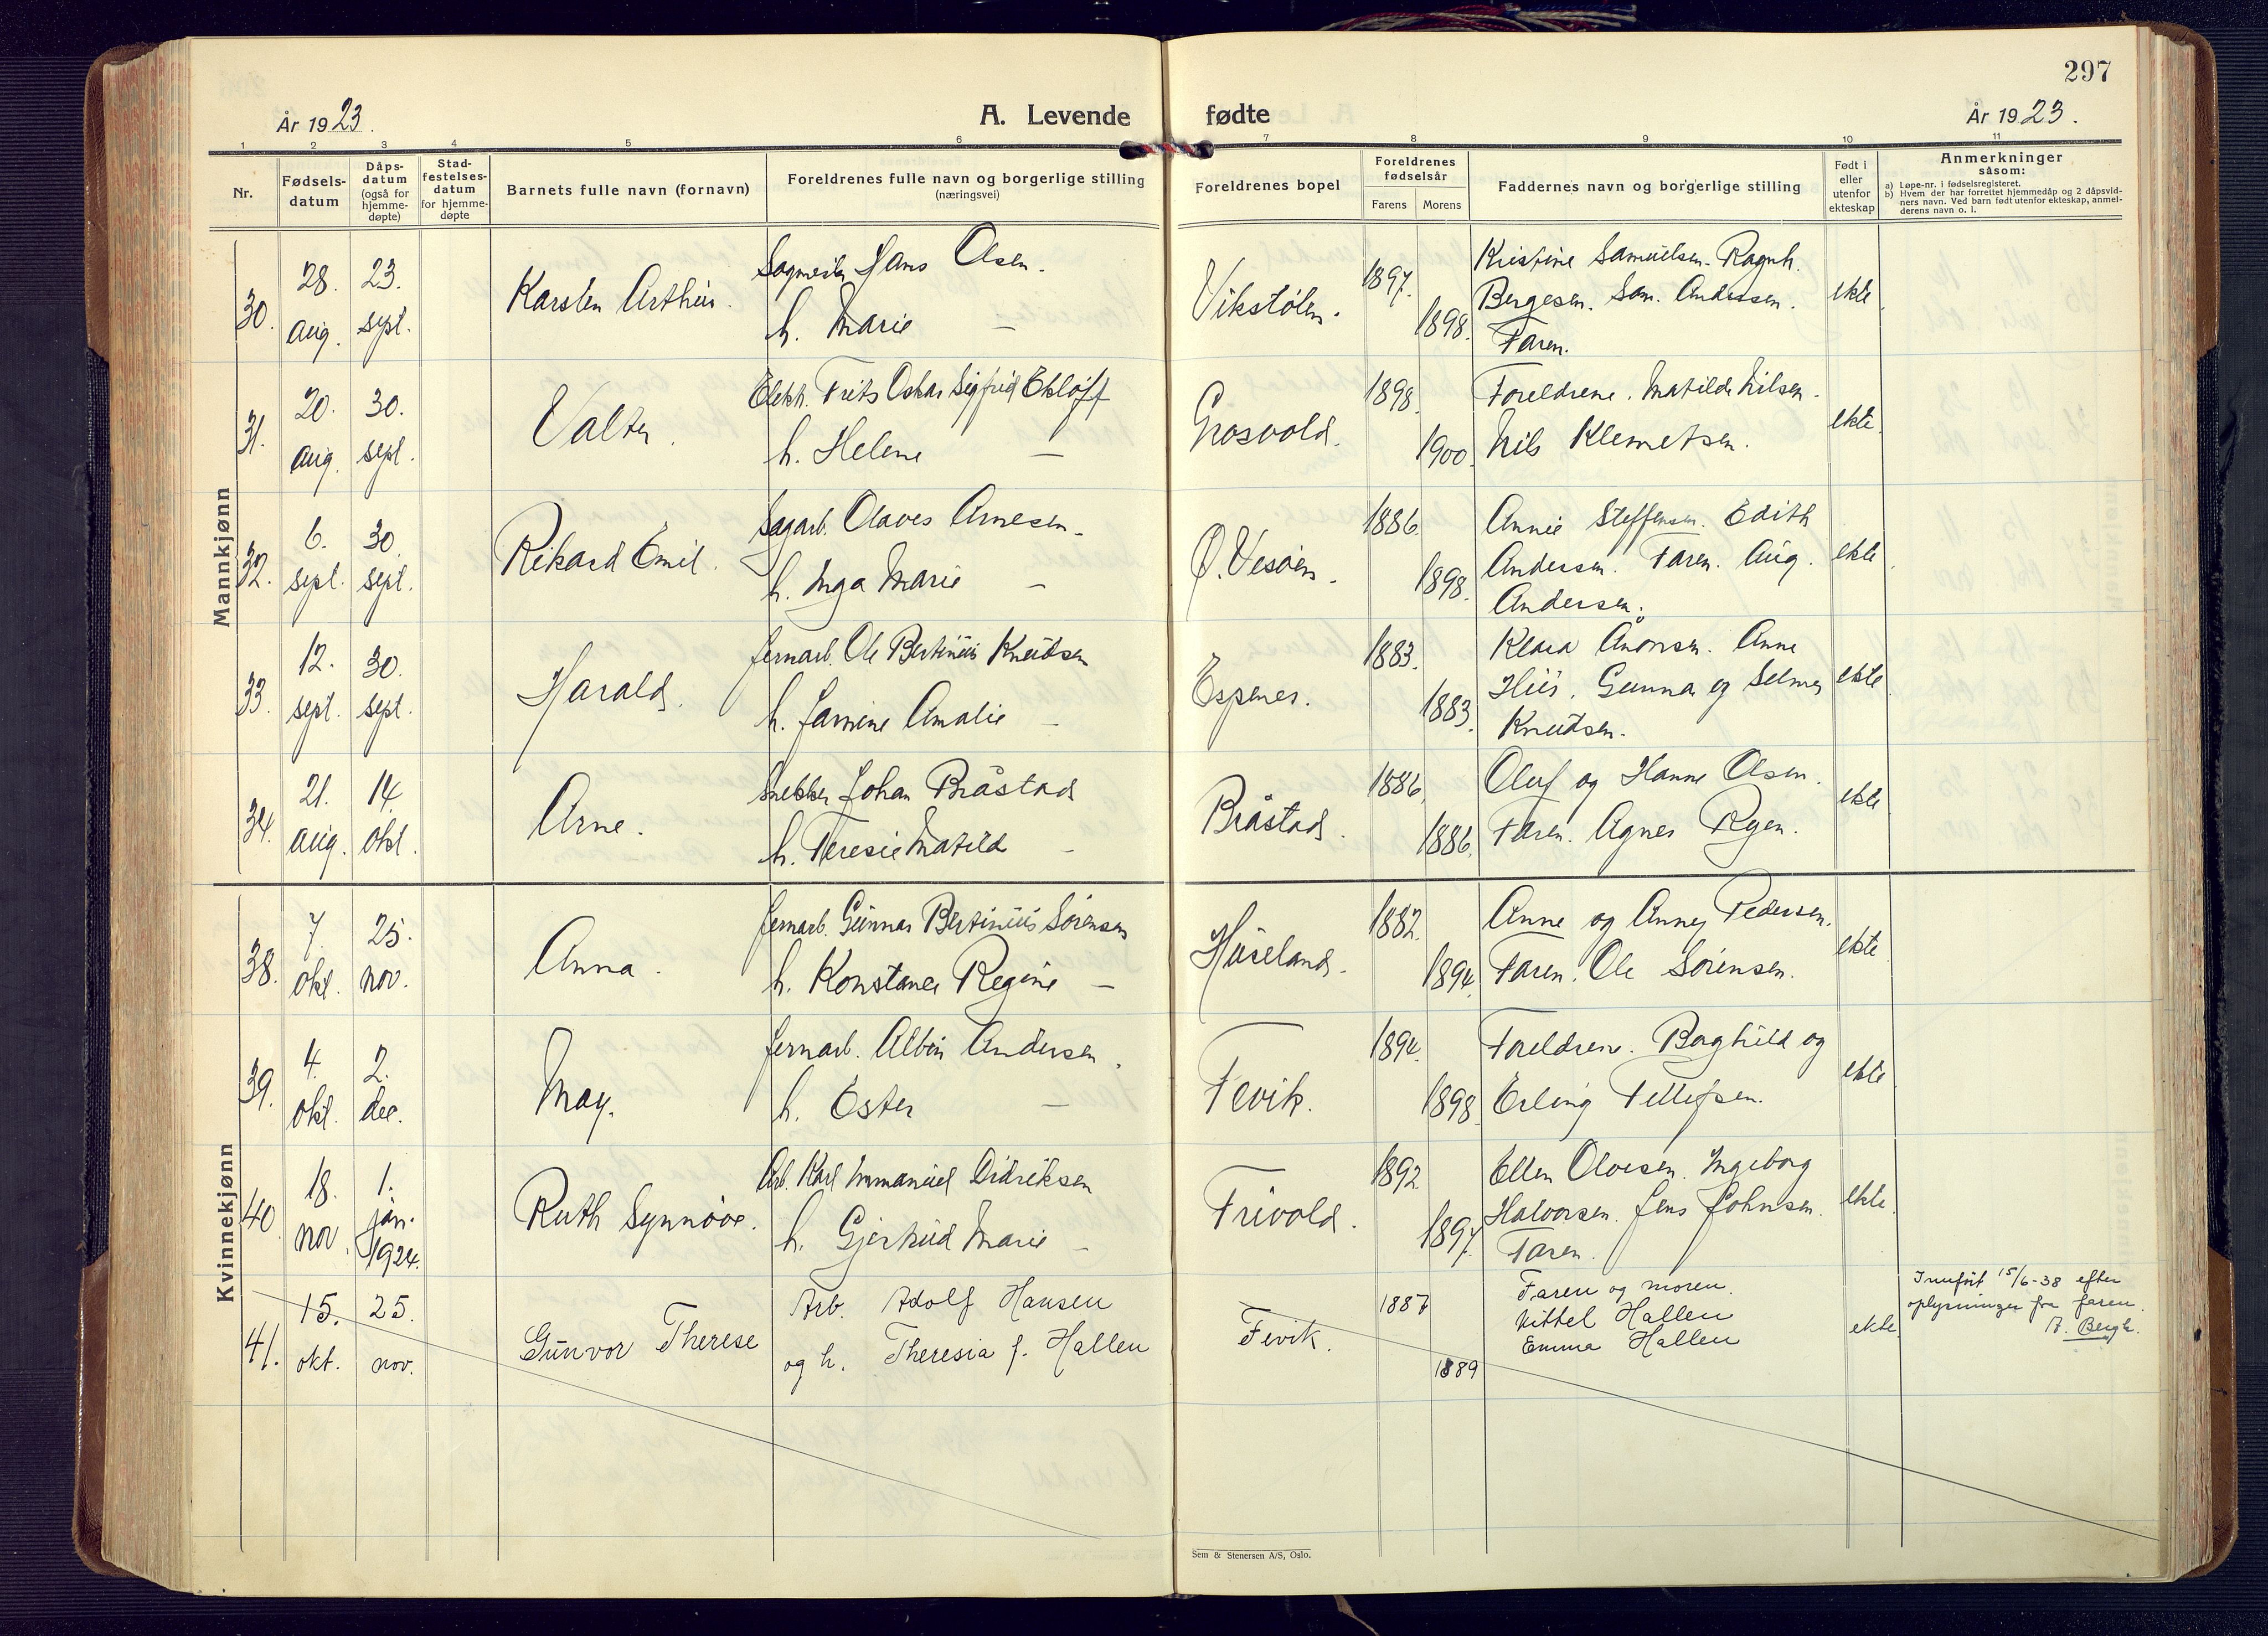 297
År 1923.
A. Levende fødte
År 1923.
1 2 3 4 5 6 7 8 9 10 11
Nr.
Fødsels-
datum
Dåps-
datum
(også for
hjemme-
døpte)
Stad-
festelses-
datum
for hjemme-
døpte
Barnets fulle navn (fornavn)
Foreldrenes fulle navn og borgerlige stilling
(næringsvei)
Foreldrenes bopel
Foreldrenes
fødselsår
Farens Morens
Faddernes navn og borgerlige stilling
Født i
eller
utenfor
ekteskap
Anmerkninger
såsom:
a) Løpe-nr. i fødselsregisteret.
b) Hvem der har forrettet hjemmedåp og 2 dåpsvid-
ners navn. Ved barn født utenfor ekteskap, anmel-
derens navn o. l.
Mannkjønn
30.
28.
aug.
23.
sept.
Karsten Arthur.
Hans Olsen.
h. Marie —
Vikstølen.
1897.
1898.
Kristine Samuelsen. Ragnh.
Bergesen. Sam. Andersen.
Faren.
ekte
31.
20.
aug.
30.
sept.
Valter.
Elekt. Frits Oskar Sigfrid Ekløff
h. Helene —
Grosvold.
1898.
1900.
Foreldrene. Matilde Nilsen.
Nils Klemetsen.
ekte.
32.
6.
sept.
30.
sept.
Rikard Emil.
Sagarb. Olaves Arnesen.
h. Inga Marie —
Ø. Vesøen.
1886.
1898.
Annie Steffensen. Edith
Andersen. Faren. Aug.
Andersen.
ekte.
33.
12.
sept.
30.
sept.
Harald.
Jernarb. Ole Bertinius Knudsen
h. Jamine Amalie —
Espenes.
1883.
1883.
Klara Aanonsen. Anne
Hus. Gunnar og Selmer
Knudsen.
ekte
34.
21.
aug.
14.
okt.
Arne.
Snekker Johan Bråstad
h. Teresie Matild —
Bråstad.
1886.
1886.
Oluf og Hanne Olsen.
Faren. Agnes Ryen.
ekte
Kvinnekjønn
38.
7.
okt.
25.
nov.
Anna.
Jernarb. Gunnar Bertinius Sørensen
h. Konstance Regine —
Huseland.
1882.
1894.
Anne og Anney Pedersen.
Faren. Ole Sørensen.
ekte
39.
4.
okt.
2.
dec.
May.
Jernarb. Albin Andersen.
h. Ester —
Fevik.
1894.
1898.
Foreldrene. Borghild og
Erling Tellefsen.
ekte
40.
18.
nov.
1.
jan.
1924.
Ruth Synnøve.
Arb. Karl Immanuel Didriksen
h. Gjertrud Marie —
Frivold.
1892.
1897.
Ellen Olvesen. Ingeborg
Halvorsen. Jens Johnsen.
Faren.
ekte.
41.
15.
okt.
25.
nov.
Gunvor Therese
Arb. Adolf Hansen
og h. Theresia f. Hallen
Fevik.
1887
1889
Faren og moren.
Kittel Hallen
Emma Hallen
ekte
Innført 15/6-38 efter
oplysninger fra faren.
Bergh.
Sem & Stenersen A/S, Oslo.